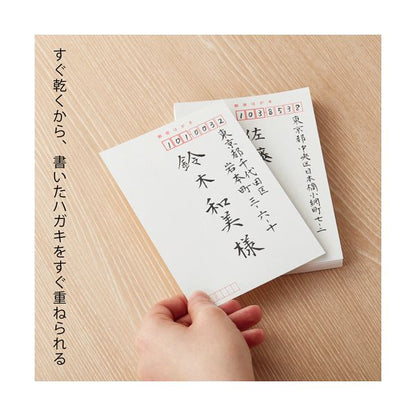 すぐ乾くから、書いたハガキをすぐ重ねられる
郵便はがき
1010032
東京都千代田区
岩本町三-六-十
鈴木和美様
1038537
東京都中央区日本橋小網町七-二
佐藤